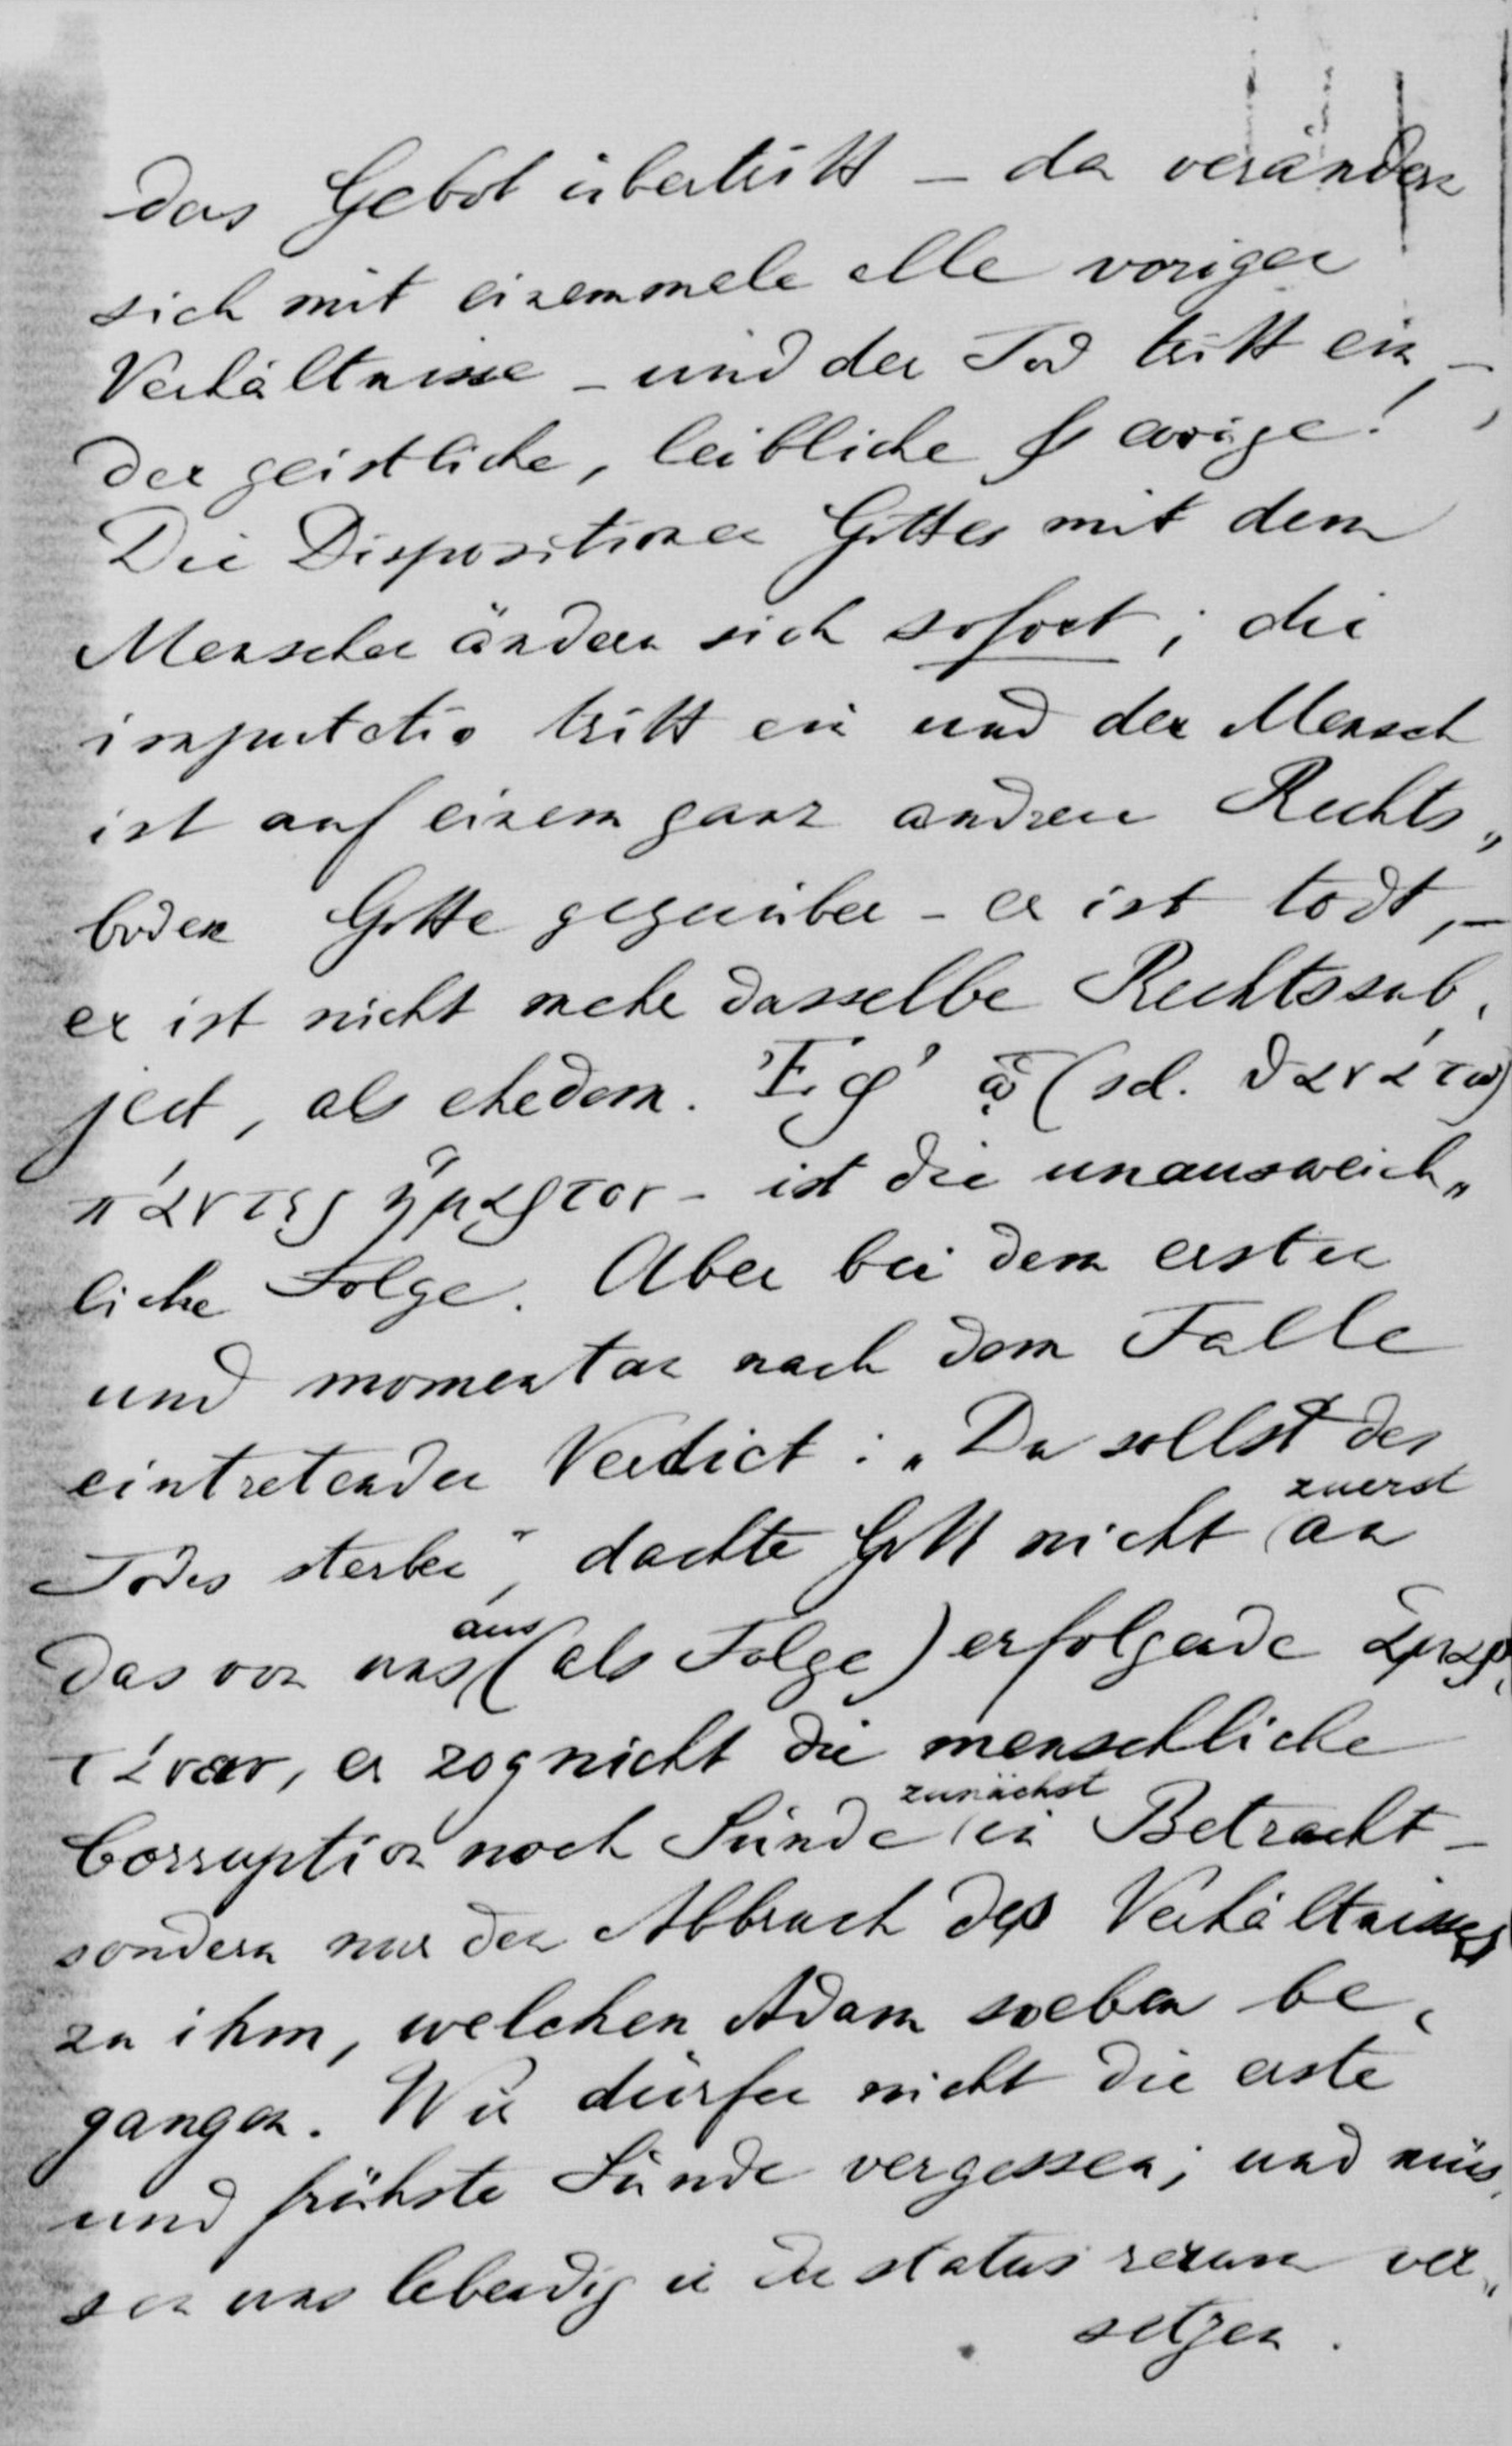 das Gebot übertritt – da verändern
sich mit einemmale alle vorigen
Verhältnisse – und der Tod tritt ein –
der geistliche, leibliche & ewige!
Die Dispositionen Gottes mit dem
Menschen ändern sich sofort; die
imputatio tritt ein und der Mensch
ist auf einem ganz andren Rechts„
boden Gotte gegenüber – er ist todt, –
er ist nicht mehr dasselbe Rechtssub„
ject, als ehedem. Ἐφ' ᾧ (scl. θανάτῳ)
πάντες ἥμαρτον – ist die unausweich„
liche Folge. Aber bei dem ersten
und momentan nach dem Falle
eintretenden Verdict: „Du sollst des
Todes sterben", dachte Gott nicht zuerst an
das von uns aus (als Folge) erfolgende ἁμαρ„
τάνειν, er zog nicht die menschliche
Corruption noch Sünde zunächst in Betracht –
sondern nur den Abbruch des Verhältnisses
zu ihm, welchen Adam soeben be„
gangen. Wir dürfen nicht die erste
und frühste Sünde vergessen; und müs„
sen uns lebendig in den status rerum ver„
setzen.